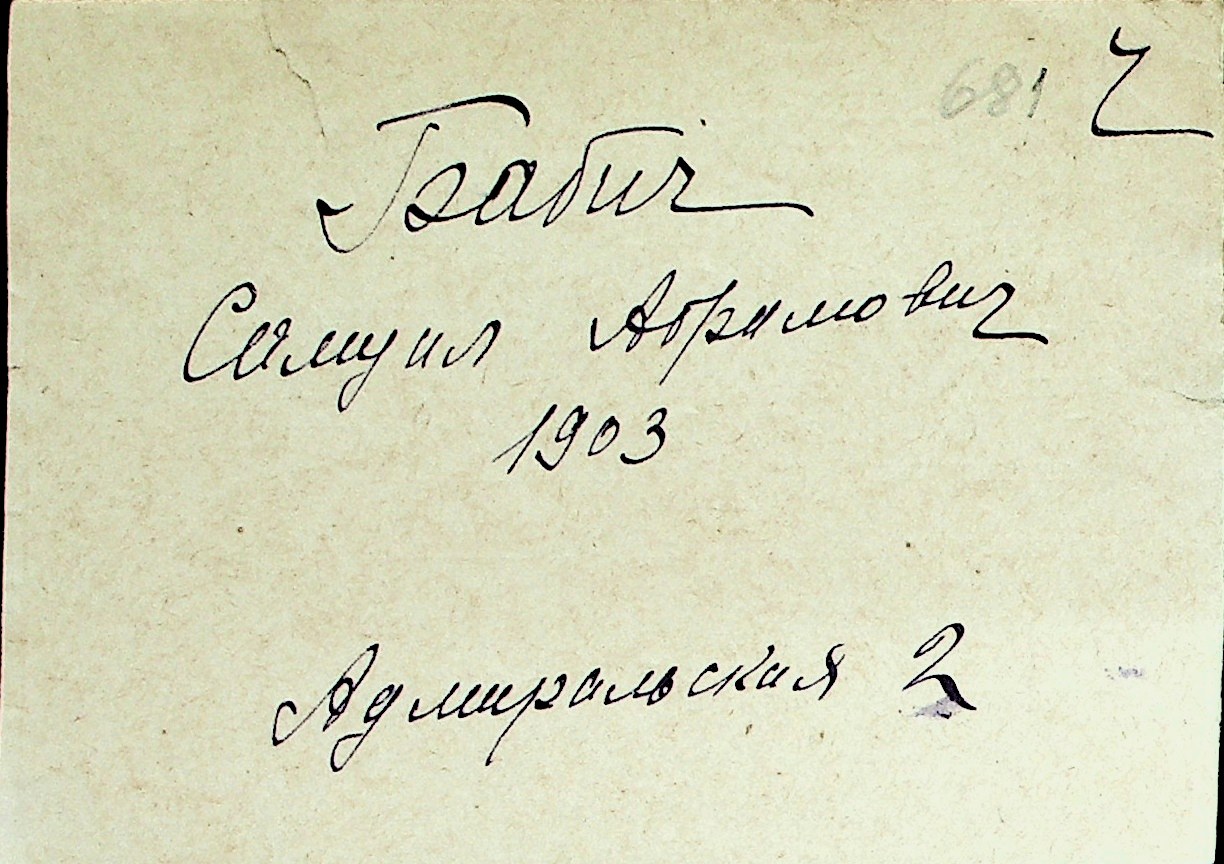 681
Бабич
Самуил Абрамович
1903
Адмиральская 2